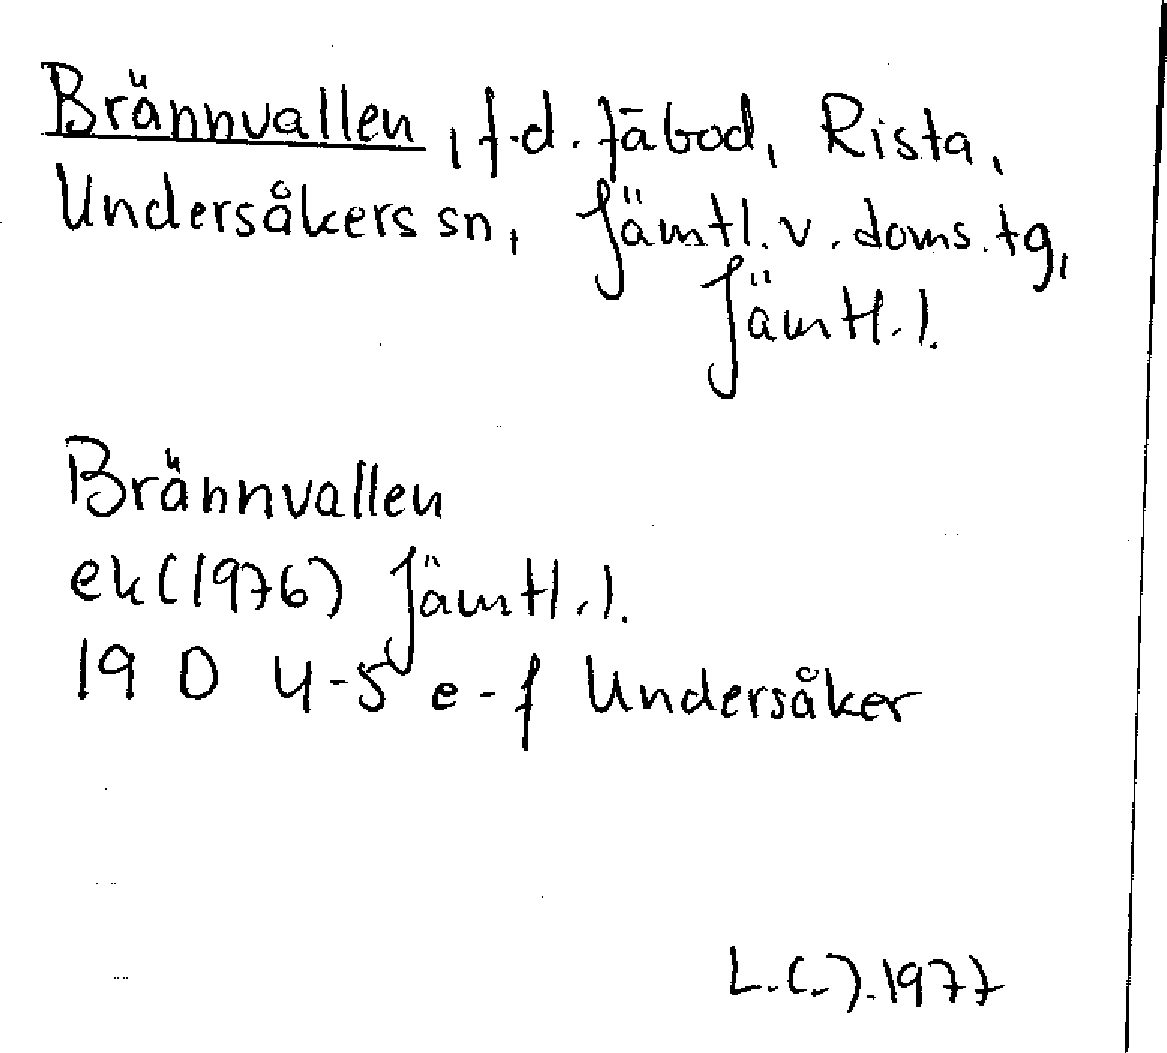 Brännvallen, f.d. fäbod, Rista,
Undersåkers sn, Jämtl. v. doms. tg,
Jämtl. l.
Brännvallen
ek (1976) Jämtl. l.
19 D 4-5 e-f Undersåker
1977